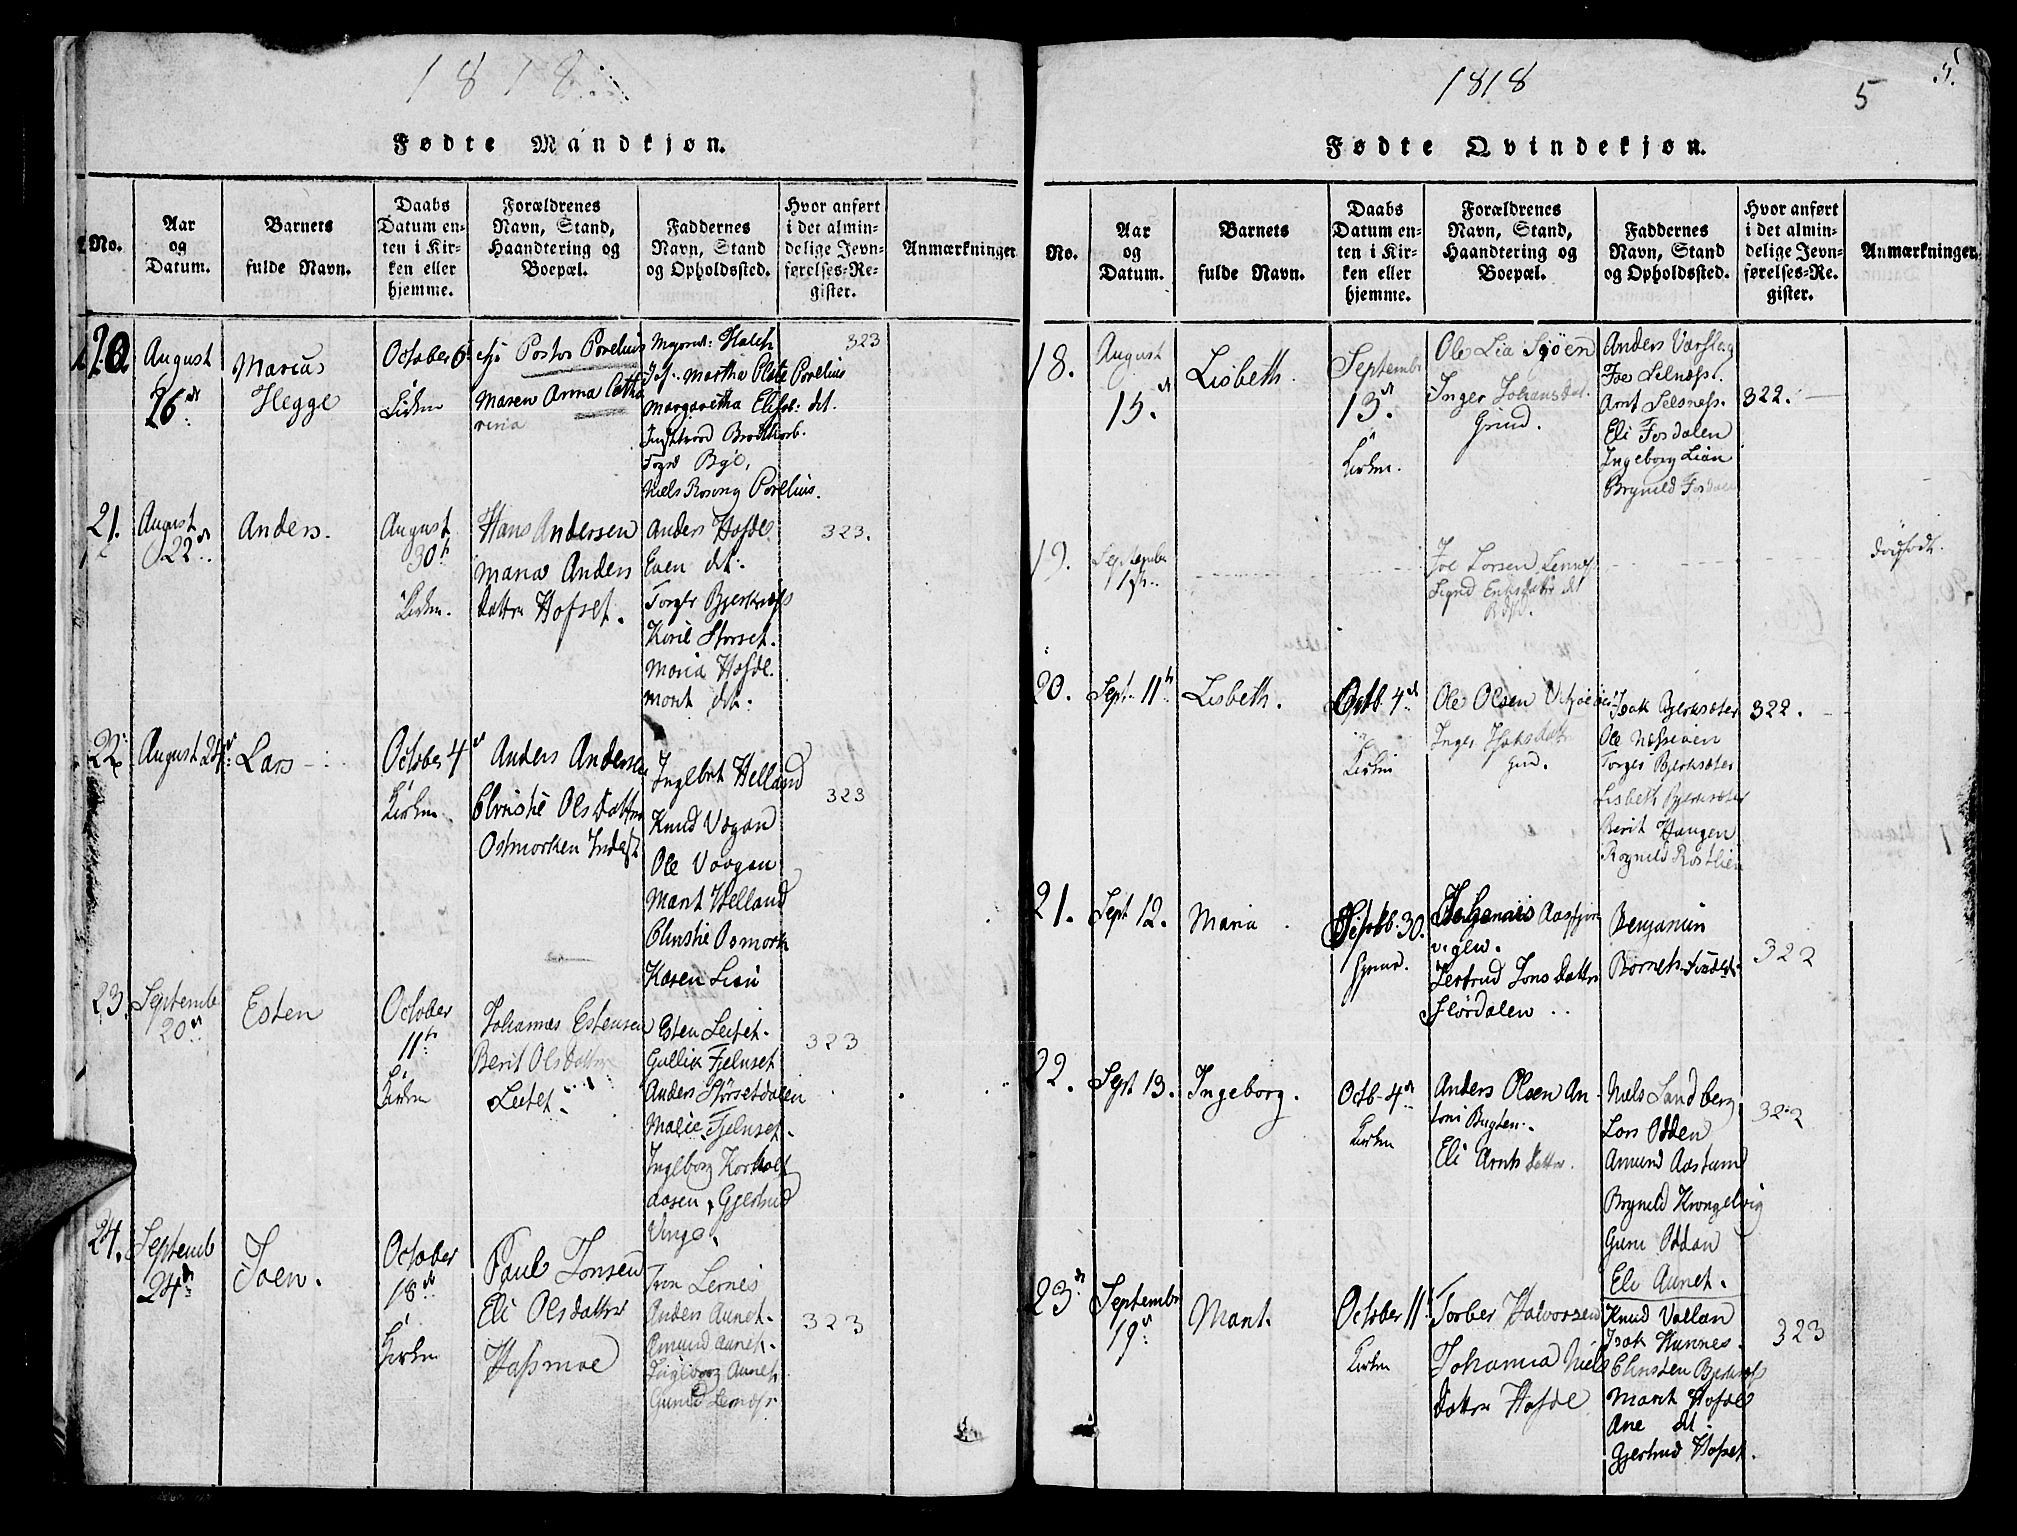 1818
Fødte Mandkjøn.
No.
Aar
og
Datum.
Barnets
fulde Navn.
Daabs
Datum en-
ten i Kir-
ken eller
hjemme.
Forældrenes
Navn, Stand,
Haandtering og
Boepæl.
Faddernes
Navn, Stand
og Opholdssted.
Hvor anført
i det almin-
delige Jevn-
førelses-Re-
gister.
Anmærkninger
20
August
26de
Marius
Hegge
October 6
Kirken
Pastor Parelius
Maren Anna Catha
rina
Martha Parelius
Margaretha
Foged Bye,
Niels Rosing Parelius.
323
21.
August
22de
Anders.
August
30te
i
Kirken.
Hans Andersen
Maria Anders
datter Hofset.
Anders Hofde
Even dt:
Torger Bjerksæt
Kari Storset.
Maria Hofde.
Marit dt:
323.
22.
August 24de
Lars
October 4de
i
Kirken
Anders Andersen
Christie Olsdatter
Ostmorken Indset
Ingebrt Helland
Knud Vogan
Ole Vaagan
Marit Helland
Christie Osmork
Karen Lian
323
23.
Septemb
20de
Esten
October
11te
i
Kirken
Johannes Estensen
Berit Olsdatter
Leetet
Esten Leetet.
Gullik Fjelnset
Anders Storsetdalen
Malie Fjelnset.
Ingeborg Korholt
aasen, Gjertrud
Vinge.
323
24.
Septemb
24de
Joen.
October
18de
i
Kirken
Paul Jonsen
Eli Olsdatter
Hassmoe
Iver Lernes
Anders Aunet.
Amund Aunet.
Ingeborg Aunet
Gunild Lernes
323
1818
5
Fødte Qvindekjøn.
No.
Aar
og
Datum.
Barnets
fulde Navn.
Daabs
Datum en-
ten i Kir-
ken eller
hjemme.
Forældrenes
Navn, Stand,
Haandtering og
Boepæl.
Faddernes
Navn, Stand
og Opholdssted.
Hvor anført
i det almin-
delige Jevn-
førelses-Re-
gister.
Anmærkninger
18.
August
15.de
Lisbeth.
Septembr
13.de
i
Kirken.
Ole Lia Sjøen
Inger Johansdat.
Grind.
Anders Vaslag
Joe Selness.
Arnt Selsness.
Eli Fordalen
Ingeborg Lian
Brynild Fordalen
322.
19.
September
Joe Larsen
Sigrid Eriksdatter dt
dødfødt.
20.
Sept. 11te
Lisbeth.
Octb. 4de
i
Kirken
Ole Olsen
Inger
Isak Bjerksæter
Ole Næsseven
Torger Bjerksæter
Lisbeth Bjerksæter
Berit Haugen
Rognild Rostlien
322.
21.
Sept 12.
Maria
Septb. 30.
hjeme.
Johannes
Gertrud Jonsdatter
Slørdalen
Benjamin
322
22.
Sept 13.
Ingeborg.
Octb. 4de
i
Kirken
Anders Olsen An-
toni Bugten.
Eli Arntsdatter.
Niels Sandberg
Lars Odden
Amund Aastum
Brynild Krongelvig
Guru Oddan
Eli Aunet.
322
23de
Septembr
19de
Marit.
October 11te
i
Kirken
Torber Halvorsen
Johanna Niels
datter Hofde
Knud Vallan
Isak Hunnes.
Christen Bjerksæt
Marit Hofde
Ane dt
Gjertrud Hofset.
323